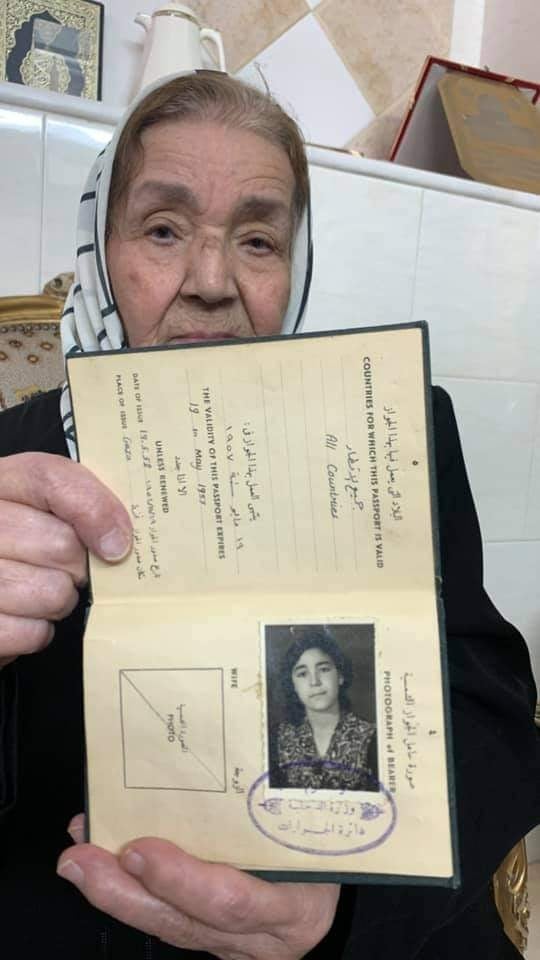 ٥
البلاد التي يعمل فيها بهذا الجواز
COUNTRIES FOR WHICH THIS PASSPORT IS VALID
جميع الاقطار
All Countries
ينتهي العمل بهذا الجواز في :
١٩ مايو سنة ١٩٥٧
THE VALIDITY OF THIS PASSPORT EXPIRES
19 May 1957
الا اذا جدد
UNLESS RENEWED
تاريخ صدور الجواز
DATE OF ISSUE 19.5.52
مكان صدور الجواز غزة
PLACE OF ISSUE Gaza
٤
صورة حامل الجواز الشمسية
PHOTOGRAPH of BEARER
وزارة الداخلية
دائرة الجوازات
WIFE
الزوجة
الصورة الشمسية
PHOTO